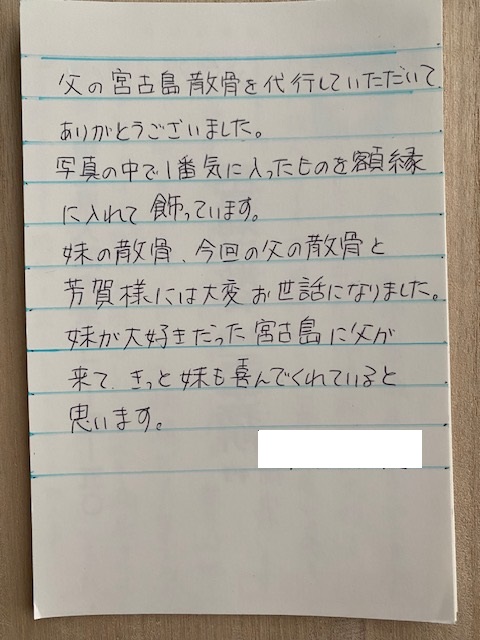 父の宮古島散骨を代行していただいて
ありがとうございました。
写真の中で1番気に入ったものを額縁
に入れて飾っています。
妹の散骨、今回の父の散骨と
芳賀様には大変お世話になりました。
妹が大好きだった宮古島に父が
来て、きっと妹も喜んでくれていると
思います。